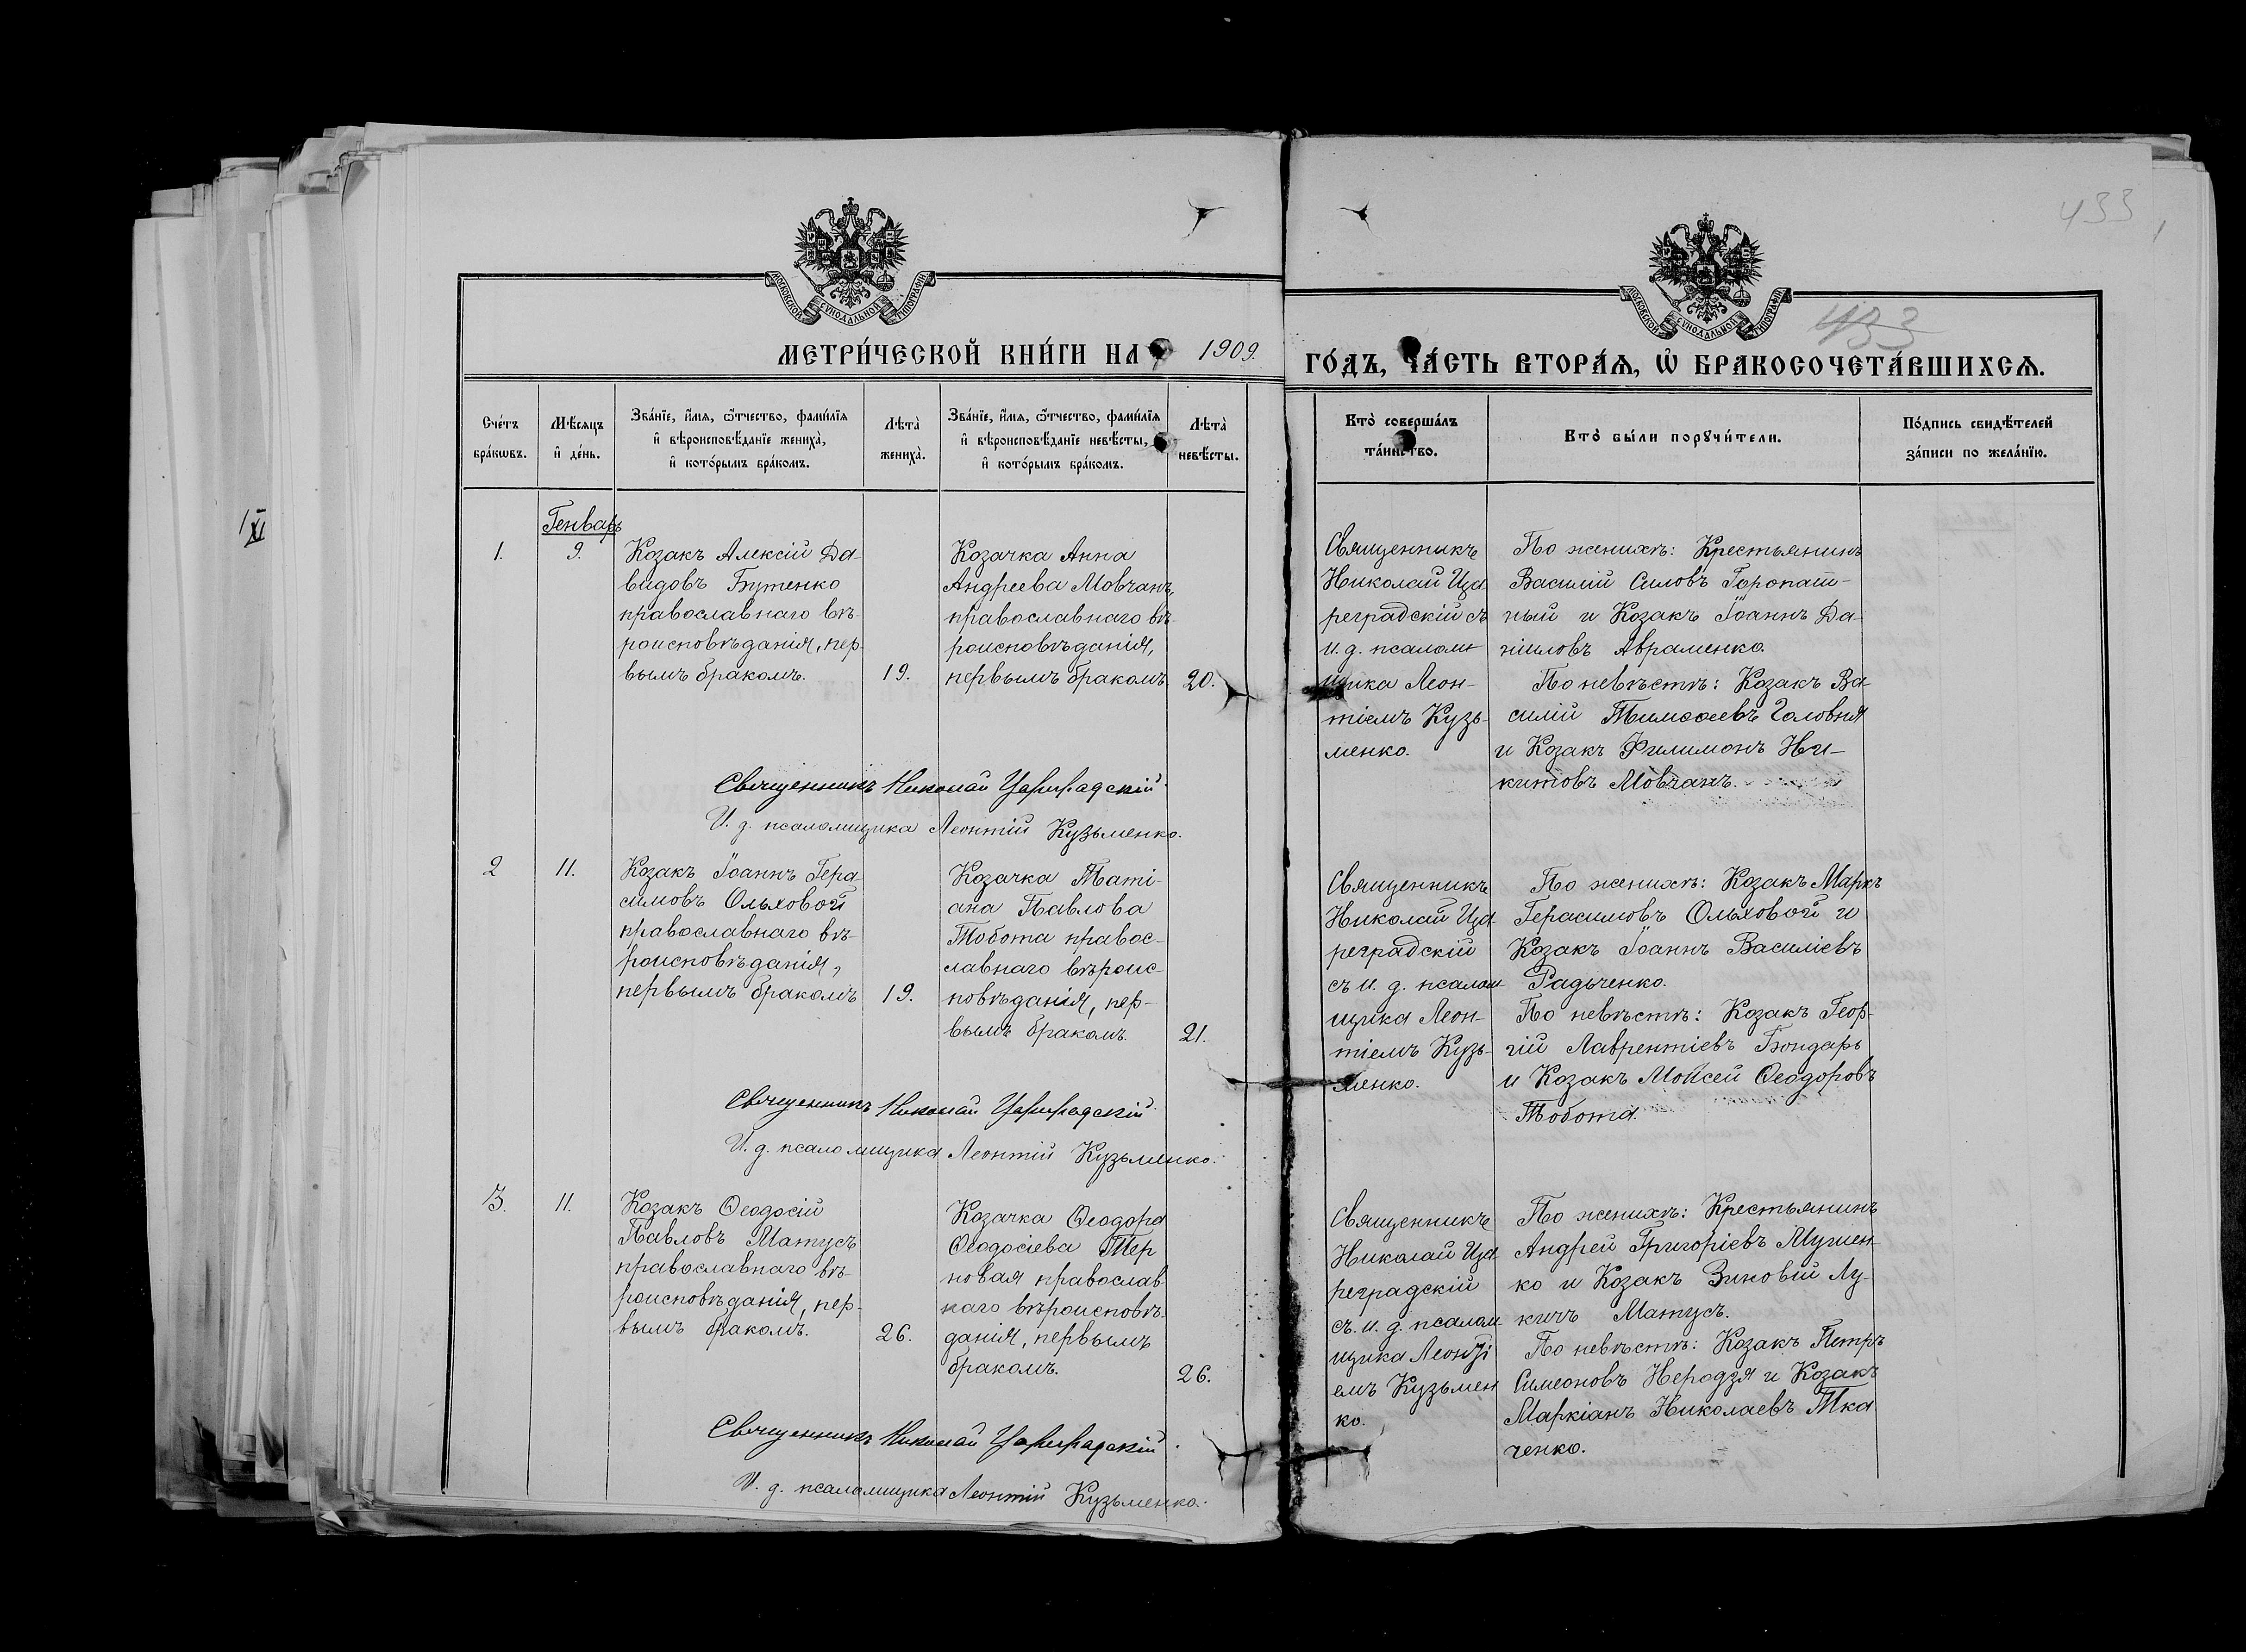 433
МОСКОВСКОЙ СѴНОДАЛЬНОЙ ТИПОГРАФІИ
МОСКОВСКОЙ СѴНОДАЛЬНОЙ ТИПОГРАФІИ
433
МЕТРИ́ЧЕСКОЙ КНИ́ГИ НА 1909.
ГО́ДЪ, ЧА́СТЬ ВТОРА́Ѧ, Ѡ҆ БРАКОСОЧЕТА́ВШИХСѦ.
Сче́тъ
бра́кѡвъ.
Мѣ́сѧцъ
и҆ де́нь.
Зва́нїе, и҆́мѧ, ѻ҆́тчество, фами́лїѧ
и҆ вѣроисповѣ́данїе жениха̀,
и҆ кото́рымъ бра́комъ.
Лѣта̀
жениха̀.
Зва́нїе, и҆́мѧ, ѻ҆́тчество, фами́лїѧ
и҆ вѣроисповѣ́данїе невѣ́сты,
и҆ кото́рымъ бра́комъ.
Лѣта̀
невѣ́сты.
Кто̀ соверша́лъ
та́инство.
Кто̀ бы́ли порꙋчи́тели.
По́дпись свидѣ́телей
за́писи по жела́нїю.
Генварь
1.
9.
Козакъ Алексій Да-
видовъ Бутенко
православнаго вѣ-
роисповѣданія, пер-
вымъ бракомъ.
19.
Козачка Анна
Андреева Мовчанъ,
православнаго вѣ-
роисповѣданія,
первымъ бракомъ.
20.
Священникъ
Николай Ца-
реградскій съ
и. д. псалом-
щика Леон-
тіемъ Кузь-
менко.
По женихѣ: Крестьянинъ
Василій Силовъ Горопаш-
ный и Козакъ Іоаннъ Да-
ніиловъ Авраменко.
По невѣстѣ: Козакъ Ва-
силій Тимоѳеевъ Головня
и Козакъ Филимонъ Ни-
китовъ Мовчанъ.
Священникъ Николай Цареградскій.
И. д. псаломщика Леонтій Кузьменко.
2
11.
Козакъ Іоаннъ Гера-
симовъ Ольховой
православнаго вѣ-
роисповѣданія,
первымъ бракомъ
19.
Козачка Таті-
ана Павлова
Тобота правос-
лавнаго вѣроис-
повѣданія, пер-
вымъ бракомъ.
21.
Священникъ
Николай Ца-
реградскій
съ и. д. псалом-
щика Леон-
тіемъ Кузь-
менко.
По женихѣ: Козакъ Маркъ
Герасимовъ Ольховой и
Козакъ Іоаннъ Василіевъ
Радьченко.
По невѣстѣ: Козакъ Геор-
гій Лаврентіевъ Бондарь
и Козакъ Мойсей Ѳеодоровъ
Тобота.
Священникъ Николай Цареградскій
И. д. псаломщика Леонтій Кузьменко.
3.
11.
Козакъ Ѳеодосій
Павловъ Матусъ
православнаго вѣ-
роисповѣданія, пер-
вымъ бракомъ.
26.
Козачка Ѳеодора
Ѳеодосіева Тер
новая православ
наго вѣроисповѣ-
данія, первымъ
бракомъ.
26.
Священникъ
Николай Ца-
реградскій
съ. и. д. псалом-
щика Леонті
емъ Кузьмен
ко.
По женихѣ: Крестьянинъ
Андрей Григоріевъ Мумен-
ко и Козакъ Зиновій Лу-
кичъ Матусъ.
По невѣстѣ: Козакъ Петръ
Симеоновъ Неродзя и Козакъ
Маркіанъ Николаевъ Тка
ченко.
Священникъ Николай Цареградскій.
И. д. псаломщика Леонтій Кузьменко.